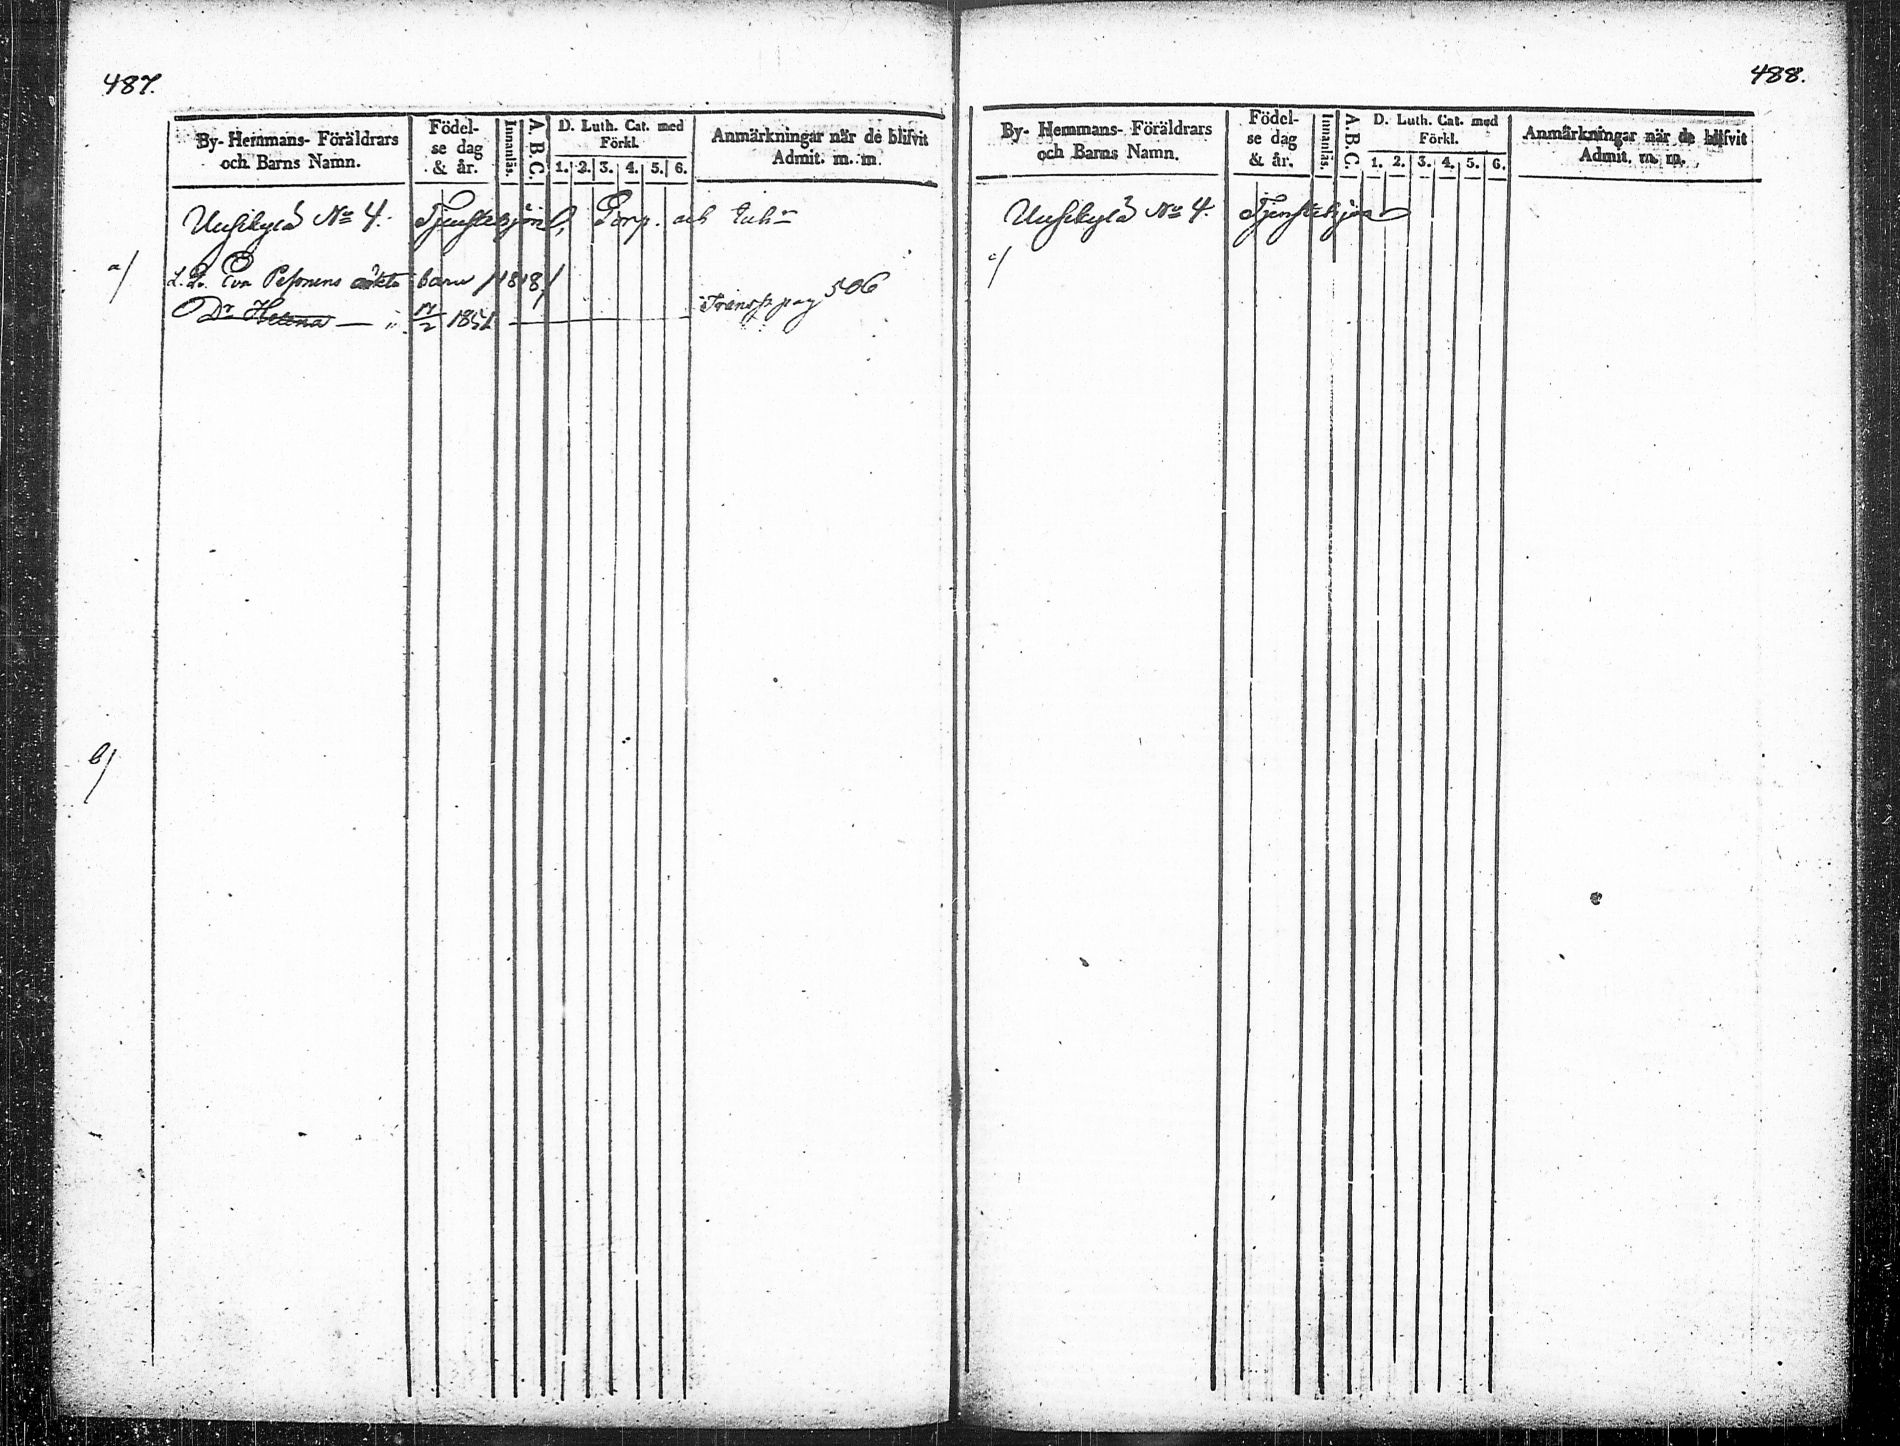 487.
By- Hemmans- Föräldrars
och Barns Namn.
Födel-
se dag
& år.
Innanläs.
A.B.C.
D. Luth. Cat. med
Förkl.
1. 2. 3. 4. 5. 6.
Anmärkningar när de blifvit
Admit. m. m.
Uusikylä No 4. Tjenstehjon, Torp. och Inh:r
a/
Eva Pesonens oäkta barn /1818/
Dr Helena — " 17/2 1851 Transp pag 506
b/
488.
By- Hemmans- Föräldrars
och Barns Namn.
Födel-
se dag
& år.
Innanläs.
A.B.C.
D. Luth. Cat. med
Förkl.
1. 2. 3. 4. 5. 6.
Anmärkningar när de blifvit
Admit. m. m.
Uusikylä No 4. Tjenstehjon
c/